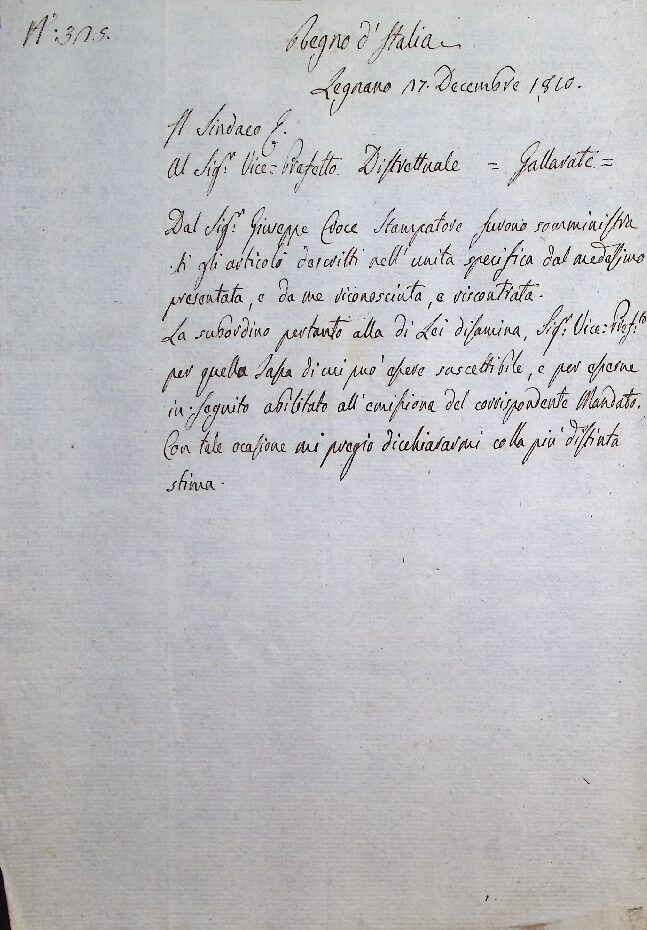 N.° 375.
Regno d'Italia
Legnano 17. Decembre 1810.
Il Sindaco
Al Sig.r Vice=Prefetto Distrettuale = Gallarate =
Dal Sig.r Giuseppe Croce Stampatore furono somministra
ti gli articoli descritti nell'unita specifica dal medessimo
presentata, e da me riconosciuta, e riscontrata.
La subordino pertanto alla di Lei disamina, Sig.r Vice=Pref.to
per quella Tassa di cui può essere suscettibile, e per esserne
in seguito abilitato all'emissione del corrispondente Mandato.
Con tale ocasione mi pregio dicchiararmi colla più distinta
stima.